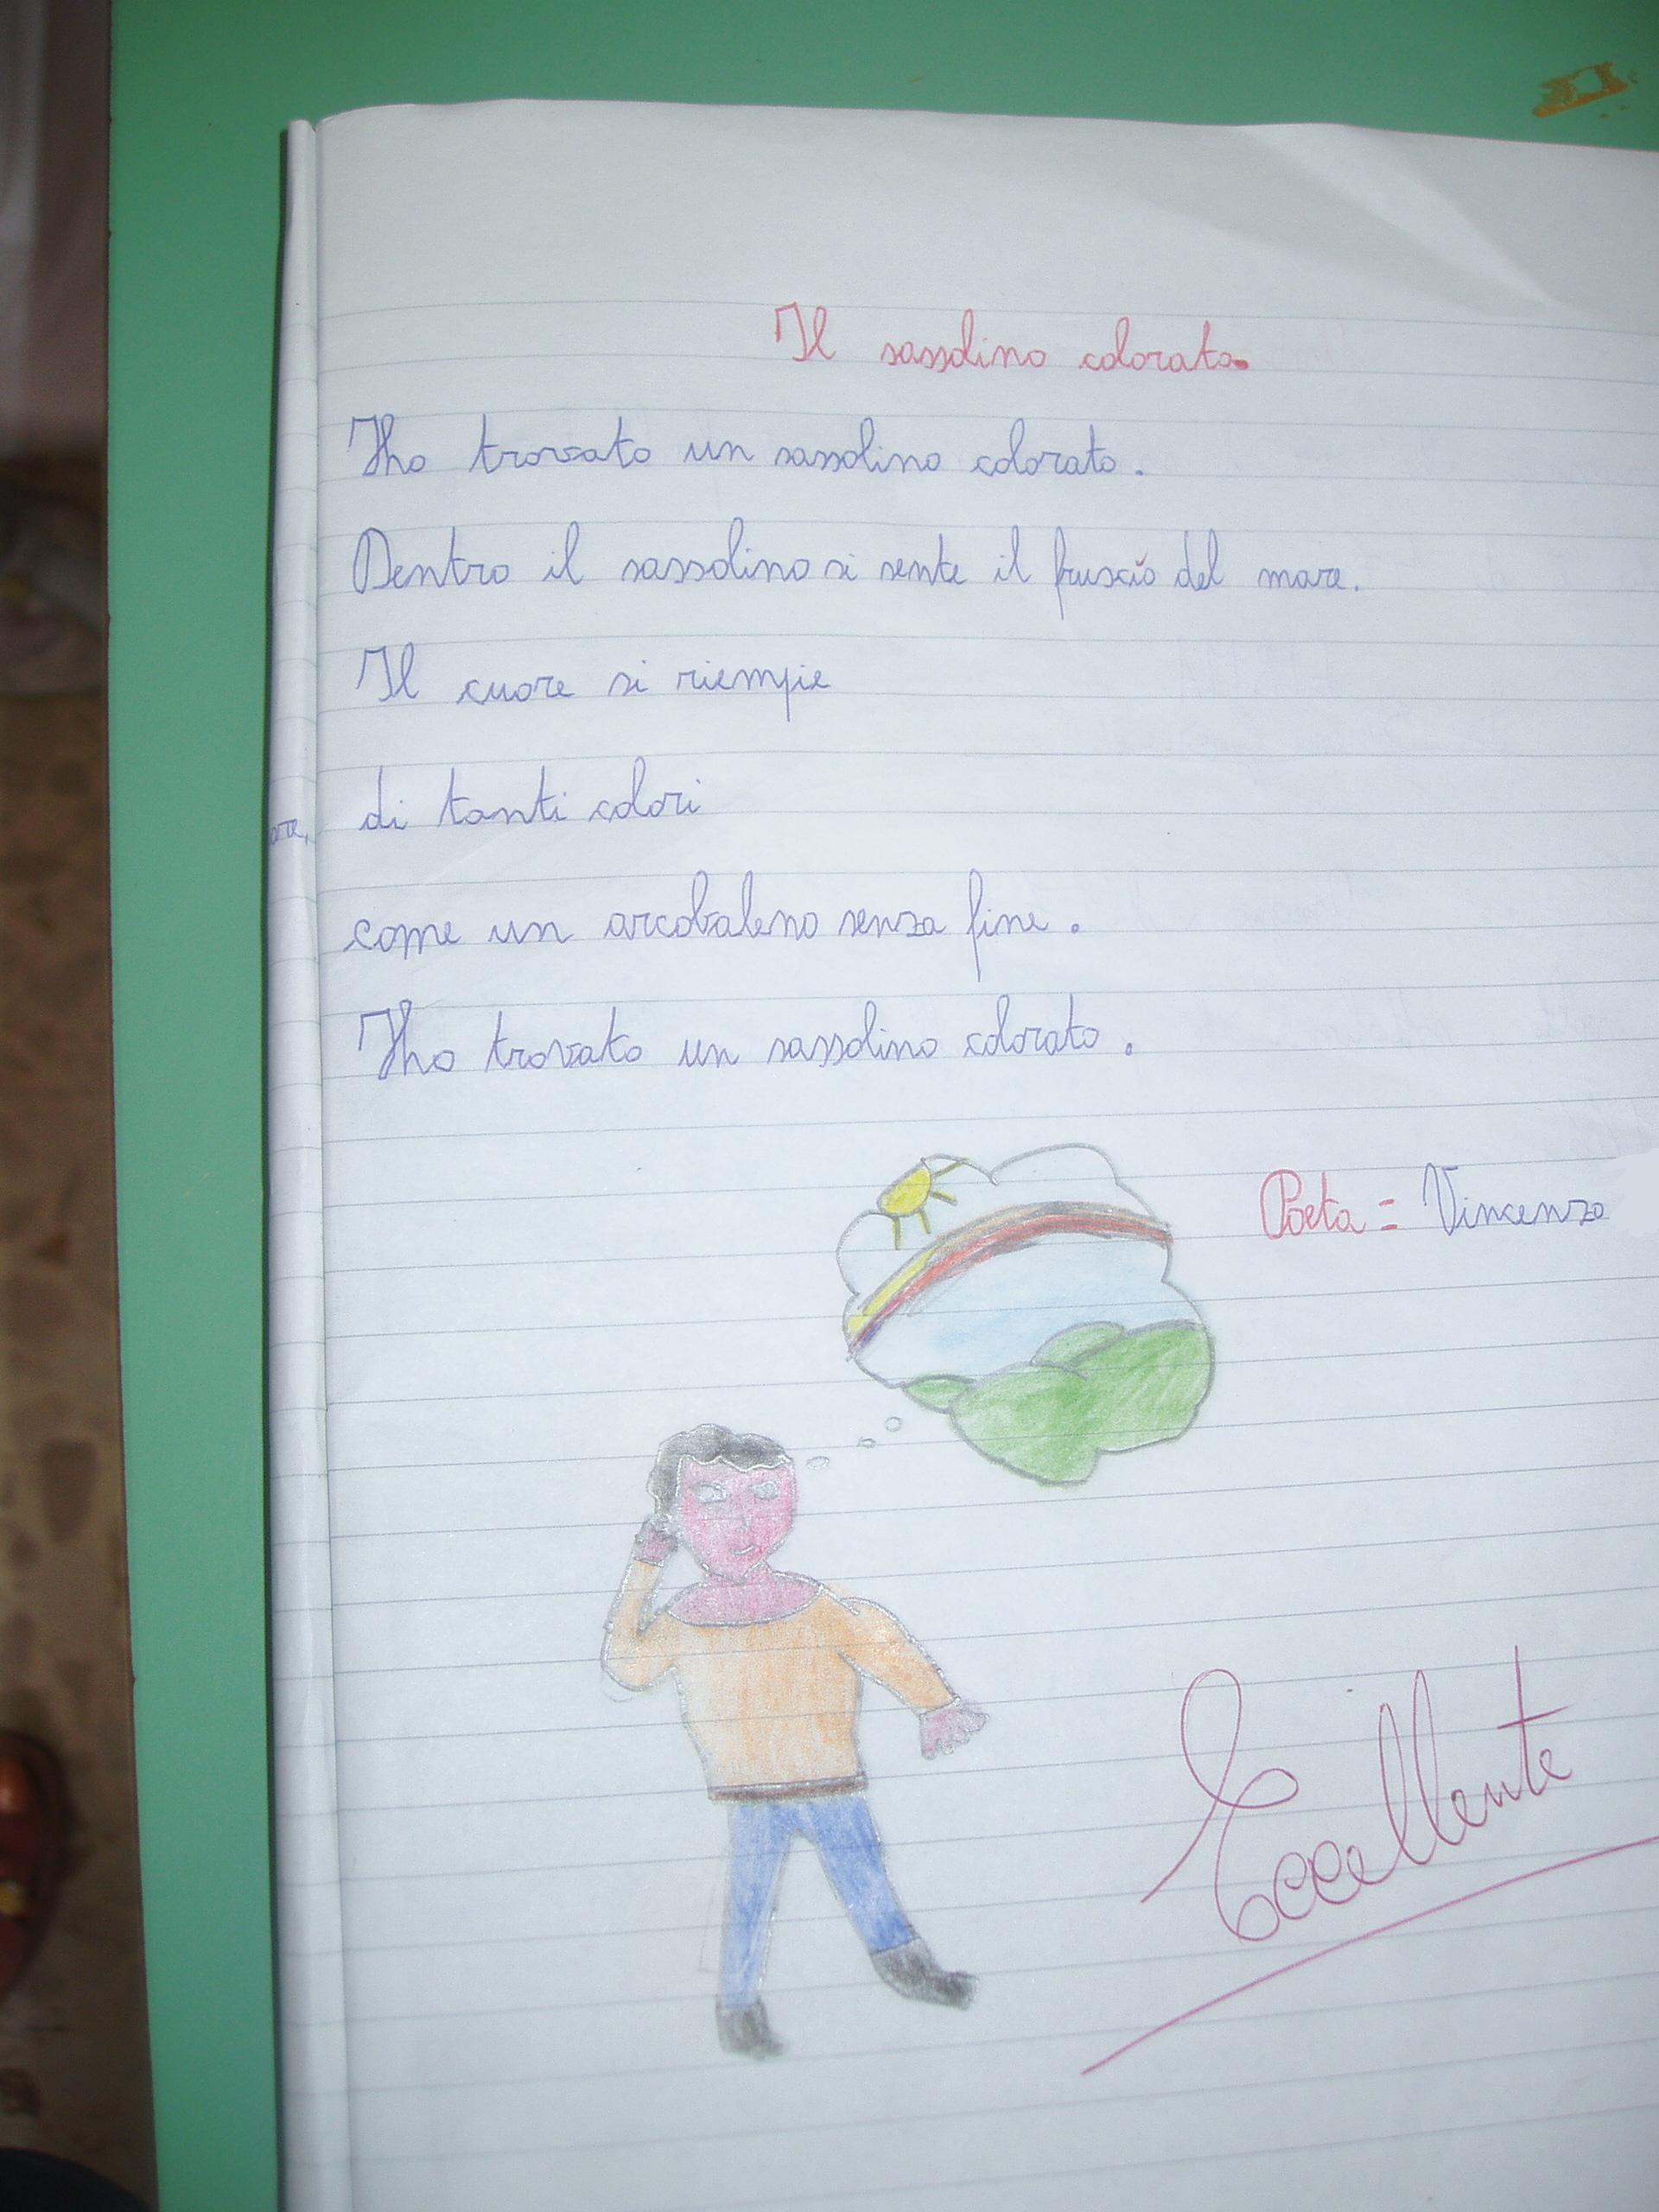 Il sassolino colorato.
Ho trovato un sassolino colorato.
Dentro il sassolino si sente il fruscio del mare.
Il cuore si riempie
di tanti colori
come un arcobaleno senza fine.
Ho trovato un sassolino colorato.
Poeta = Vincenzo
Eccellente